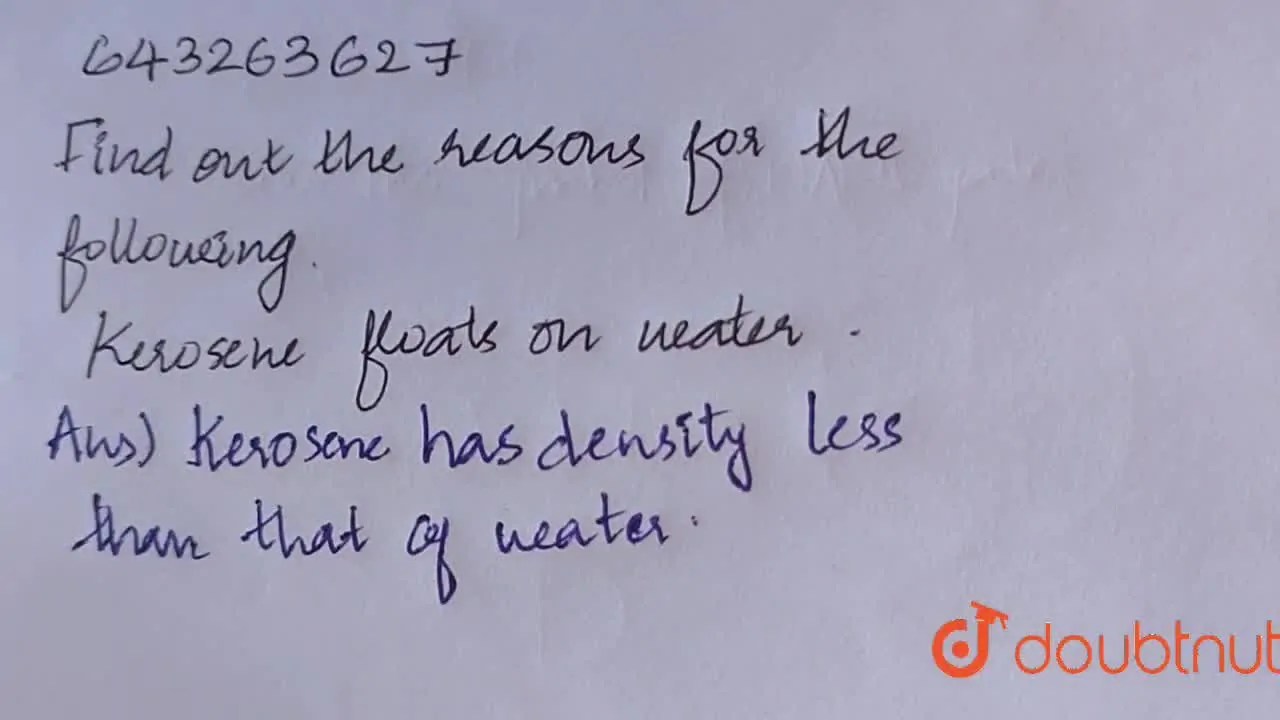 643263627
Find out the reasons for the
following.
Kerosene floats on water.
Ans) Kerosene has density less
than that of water.
doubtnut